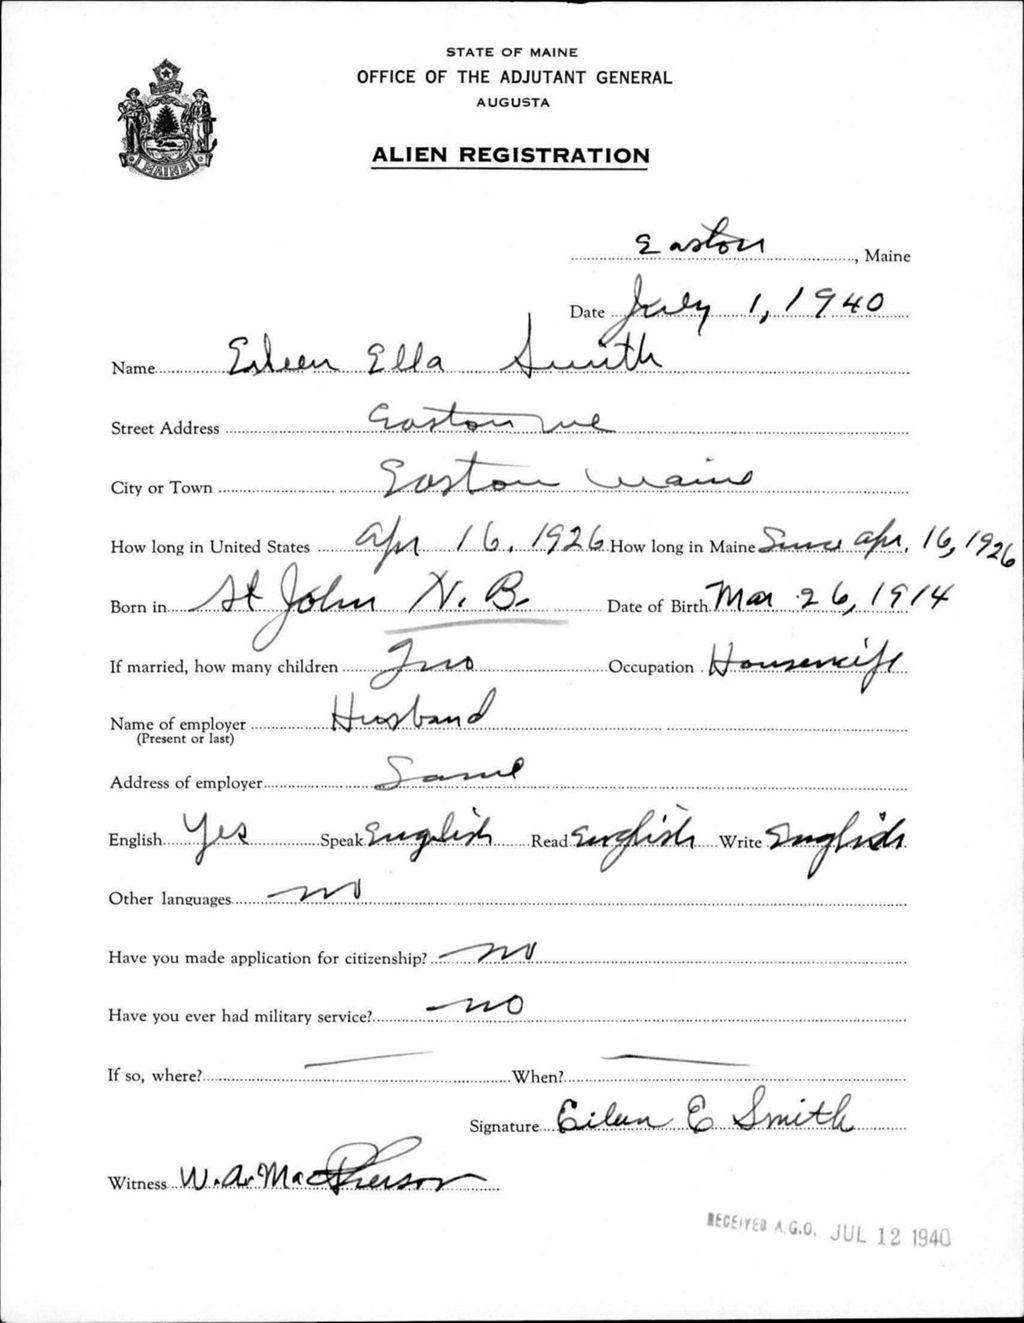 STATE OF MAINE
OFFICE OF THE ADJUTANT GENERAL
AUGUSTA
ALIEN REGISTRATION
MAINE
Easton, Maine
Date July 1, 1940
Name Eileen Ella Smith
Street Address Easton Me
City or Town Easton Maine
How long in United States Apr 16, 1926 How long in Maine Since Apr. 16, 1926
Born in St John N. B. Date of Birth Mar 26, 1914
If married, how many children Two Occupation Housewife
Name of employer Husband
(Present or last)
Address of employer Same
English Yes Speak English Read English Write English
Other languages no
Have you made application for citizenship? no
Have you ever had military service? no
If so, where? — When? —
Signature Eileen E Smith
Witness W. A. MacPherson
RECEIVED A.G.O. JUL 12 1940